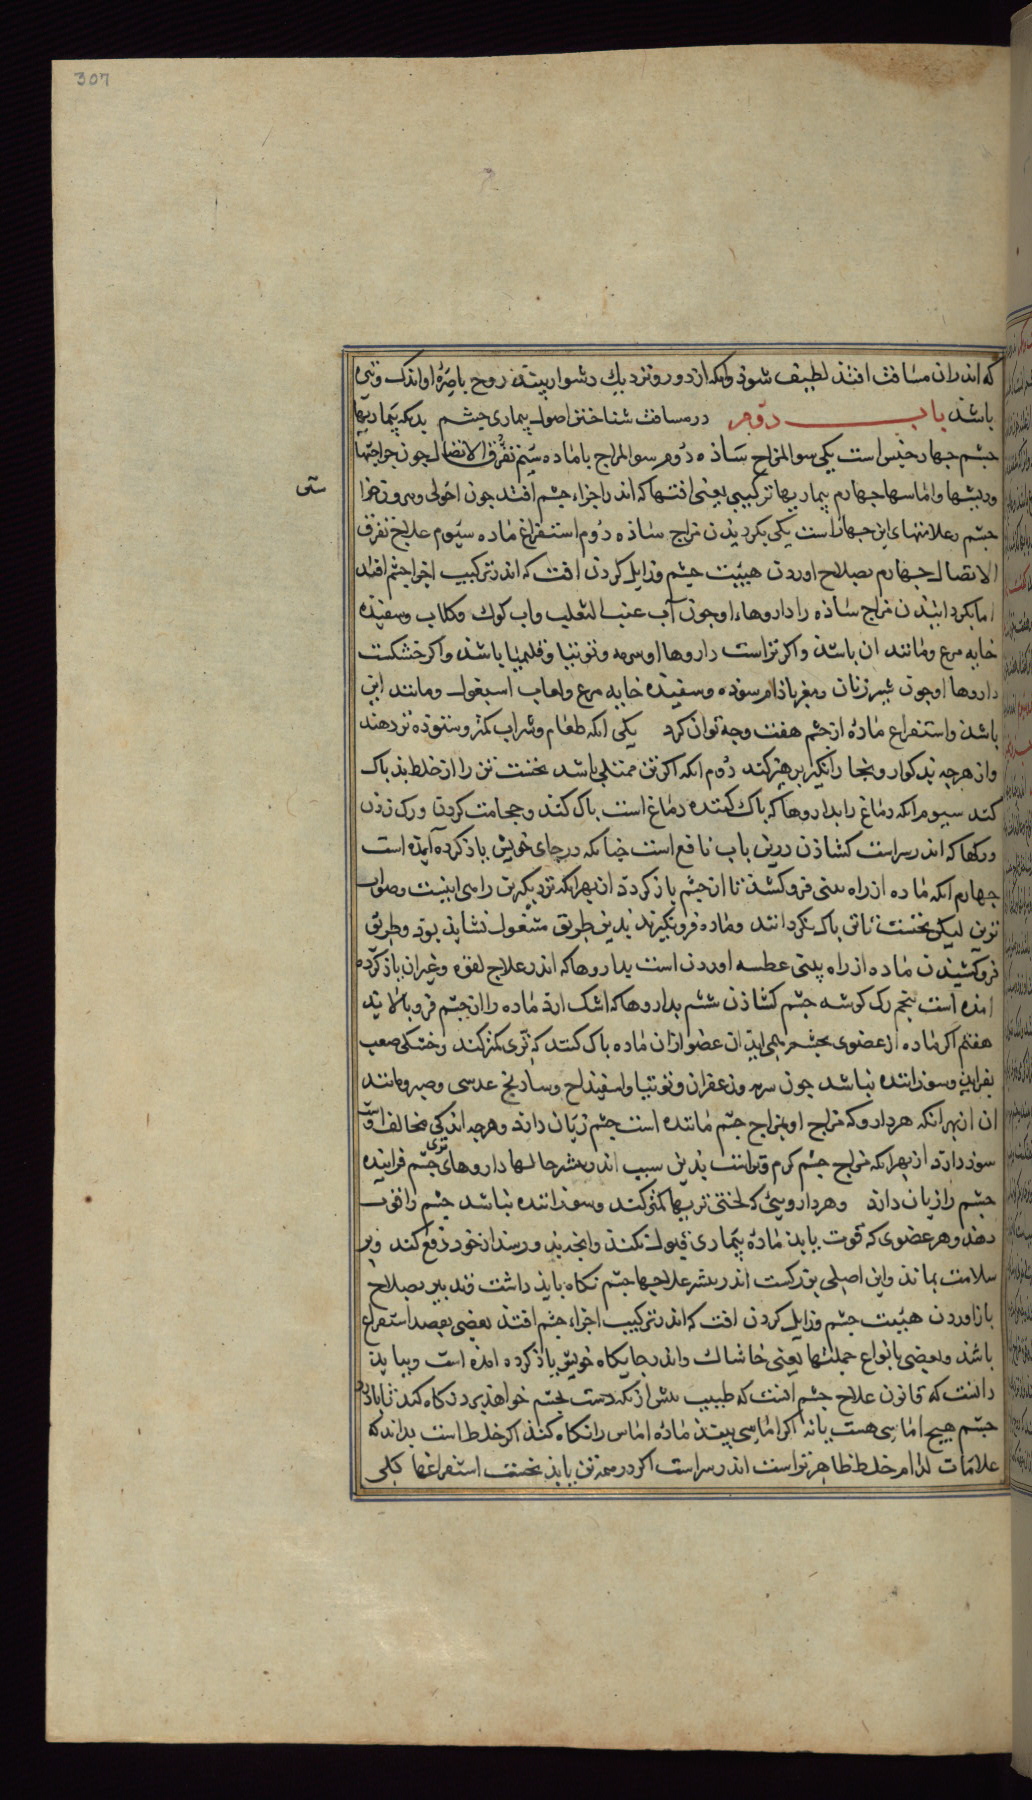 307
که اندران مسافت افتذ لطیف شوذ وانکه از دور و نزدیك دشوار بیند روح باصرهٔ او اندک و تیره
باشذ باب دوم در مسافت شناختن اصول بیماری چشم بدانکه بیماریها
چشم چهار جنس است یکی سوالمزاج ساذه دوم سوالمزاج باماده سیم تفرق الاتصال چون جراحتها
وریشها واماسها چهارم بیماریها ترکیبی یعنی افتها که اندر اجزاء چشم افتد چون احولی وبیرون خزا
ستی
چشم وعلاجتهای این چهاراست یکی بکردیذن مزاج ساذه دوم استفراغ ماده سیوم علاج تفرق
الاتصال چهارم بصلاح اوردن هییت چشم وزایل کردن افت که اندر ترکیب اجزا چشم افتد
اما بکردانیذن مزاج ساذه را داروهاء او چون آب عنب الثعلب واب کوك وکلاب وسفیذه
خایه مرغ ومانند ان باشذ واکر تراست داروها او سرمه وتوتیا وقلیمیا باشذ واکر خشکست
داروها او چون شیر زنان ومغز باذام سوذه وسفیذه خایه مرغ ولعاب اسبغول ومانند این
باشذ واستفراع مادهٔ از چشم هفت وجه توان کرد یکی انکه طعام وشراب کمتر وستوذه تر دهند
واز هرچه بذ کوار وبخار انکیز برهیز کند دوم انکه اکر تن ممتلی باشد نخست تن را از خلط بذ باک
کند سیوم انکه دماغ را بداروها که باک کننده دماغ است باک کند وحجامت کردن ورک زذن
ورکها که اندر سراست کشاذن درین باب نافع است جنانکه در جای خویش یاذ کرده آیذه است
چهارم انکه ماده از راه بینی فروکشذ تا از چشم باز کردد از بهر انکه نزدیکترین راهی اینست وصواب
ترین لیکن نخست تا تن باک نکردانند وماده فرو نکیرند بدین طریق مشغول نشاید بود وطریق
فروکشیذن ماده از راه بینی عطسه اوردن است بداروها که اندر علاج لقوه وغیر ان یاذ کرده
امذه است بنجم رک کوشه چشم کشاذن ششم بداروها که اشک ارد ماده را از چشم فرو بالایذ
هفتم اکر ماده از عضوی بچشم همی ایذ ان عضو از ان ماده باک کند که تری کمتر کند وخشکی صعب
نفزاید وسوزاننده نباشد چون سرمه وزعفران وتوتیا واسفیذاج وسادنج عدسی وصبر ومانند
ان از بهر انکه هر دارو که مزاج او بمزاج چشم ماننده است چشم زیان دارد وهرچه اندکی مخالف اوست
سوذ دارد از بهر انکه مزاج چشم کرم وتراست بدین سبب اندر بیشتر حالها داروهای تری چشم فزاینده
چشم را زیان دارد وهر دارویی که لختی تریها کمتر کند وسوزاننده نباشد چشم را قوت
دهد وهر عضوی که قوت یابذ مادهٔ بیماری قبول نکند وانچه بذو رسد از خود دفع کند وبر
سلامت بماند واین اصلی بزرکست اندر بیشتر علاجها چشم نکاه بایذ داشت وتدبیر بصلاح
باز اوردن هییت چشم وزایل کردن افت که اندر ترکیب اجزاء چشم افتذ بعضی بفصد استفراغ
باشذ وبعضی بانواع حیلتها یعنی خاشاك واندر جایکاه خویش یاذ کرده امذه است وبباید
دانست که قانون علاج چشم انست که طبیب بیش از انکه دست بچشم خواهذ برد نکاه کند تا با درد
چشم هیچ اماسی هست یا نه اکر اماسی بیند مادهٔ اماس را نکاه کند اکر خلط است بداند که
علامات کدام خلط ظاهر تراست اندر سراست اکر در همه تن یابذ نخست استفراغها کلی